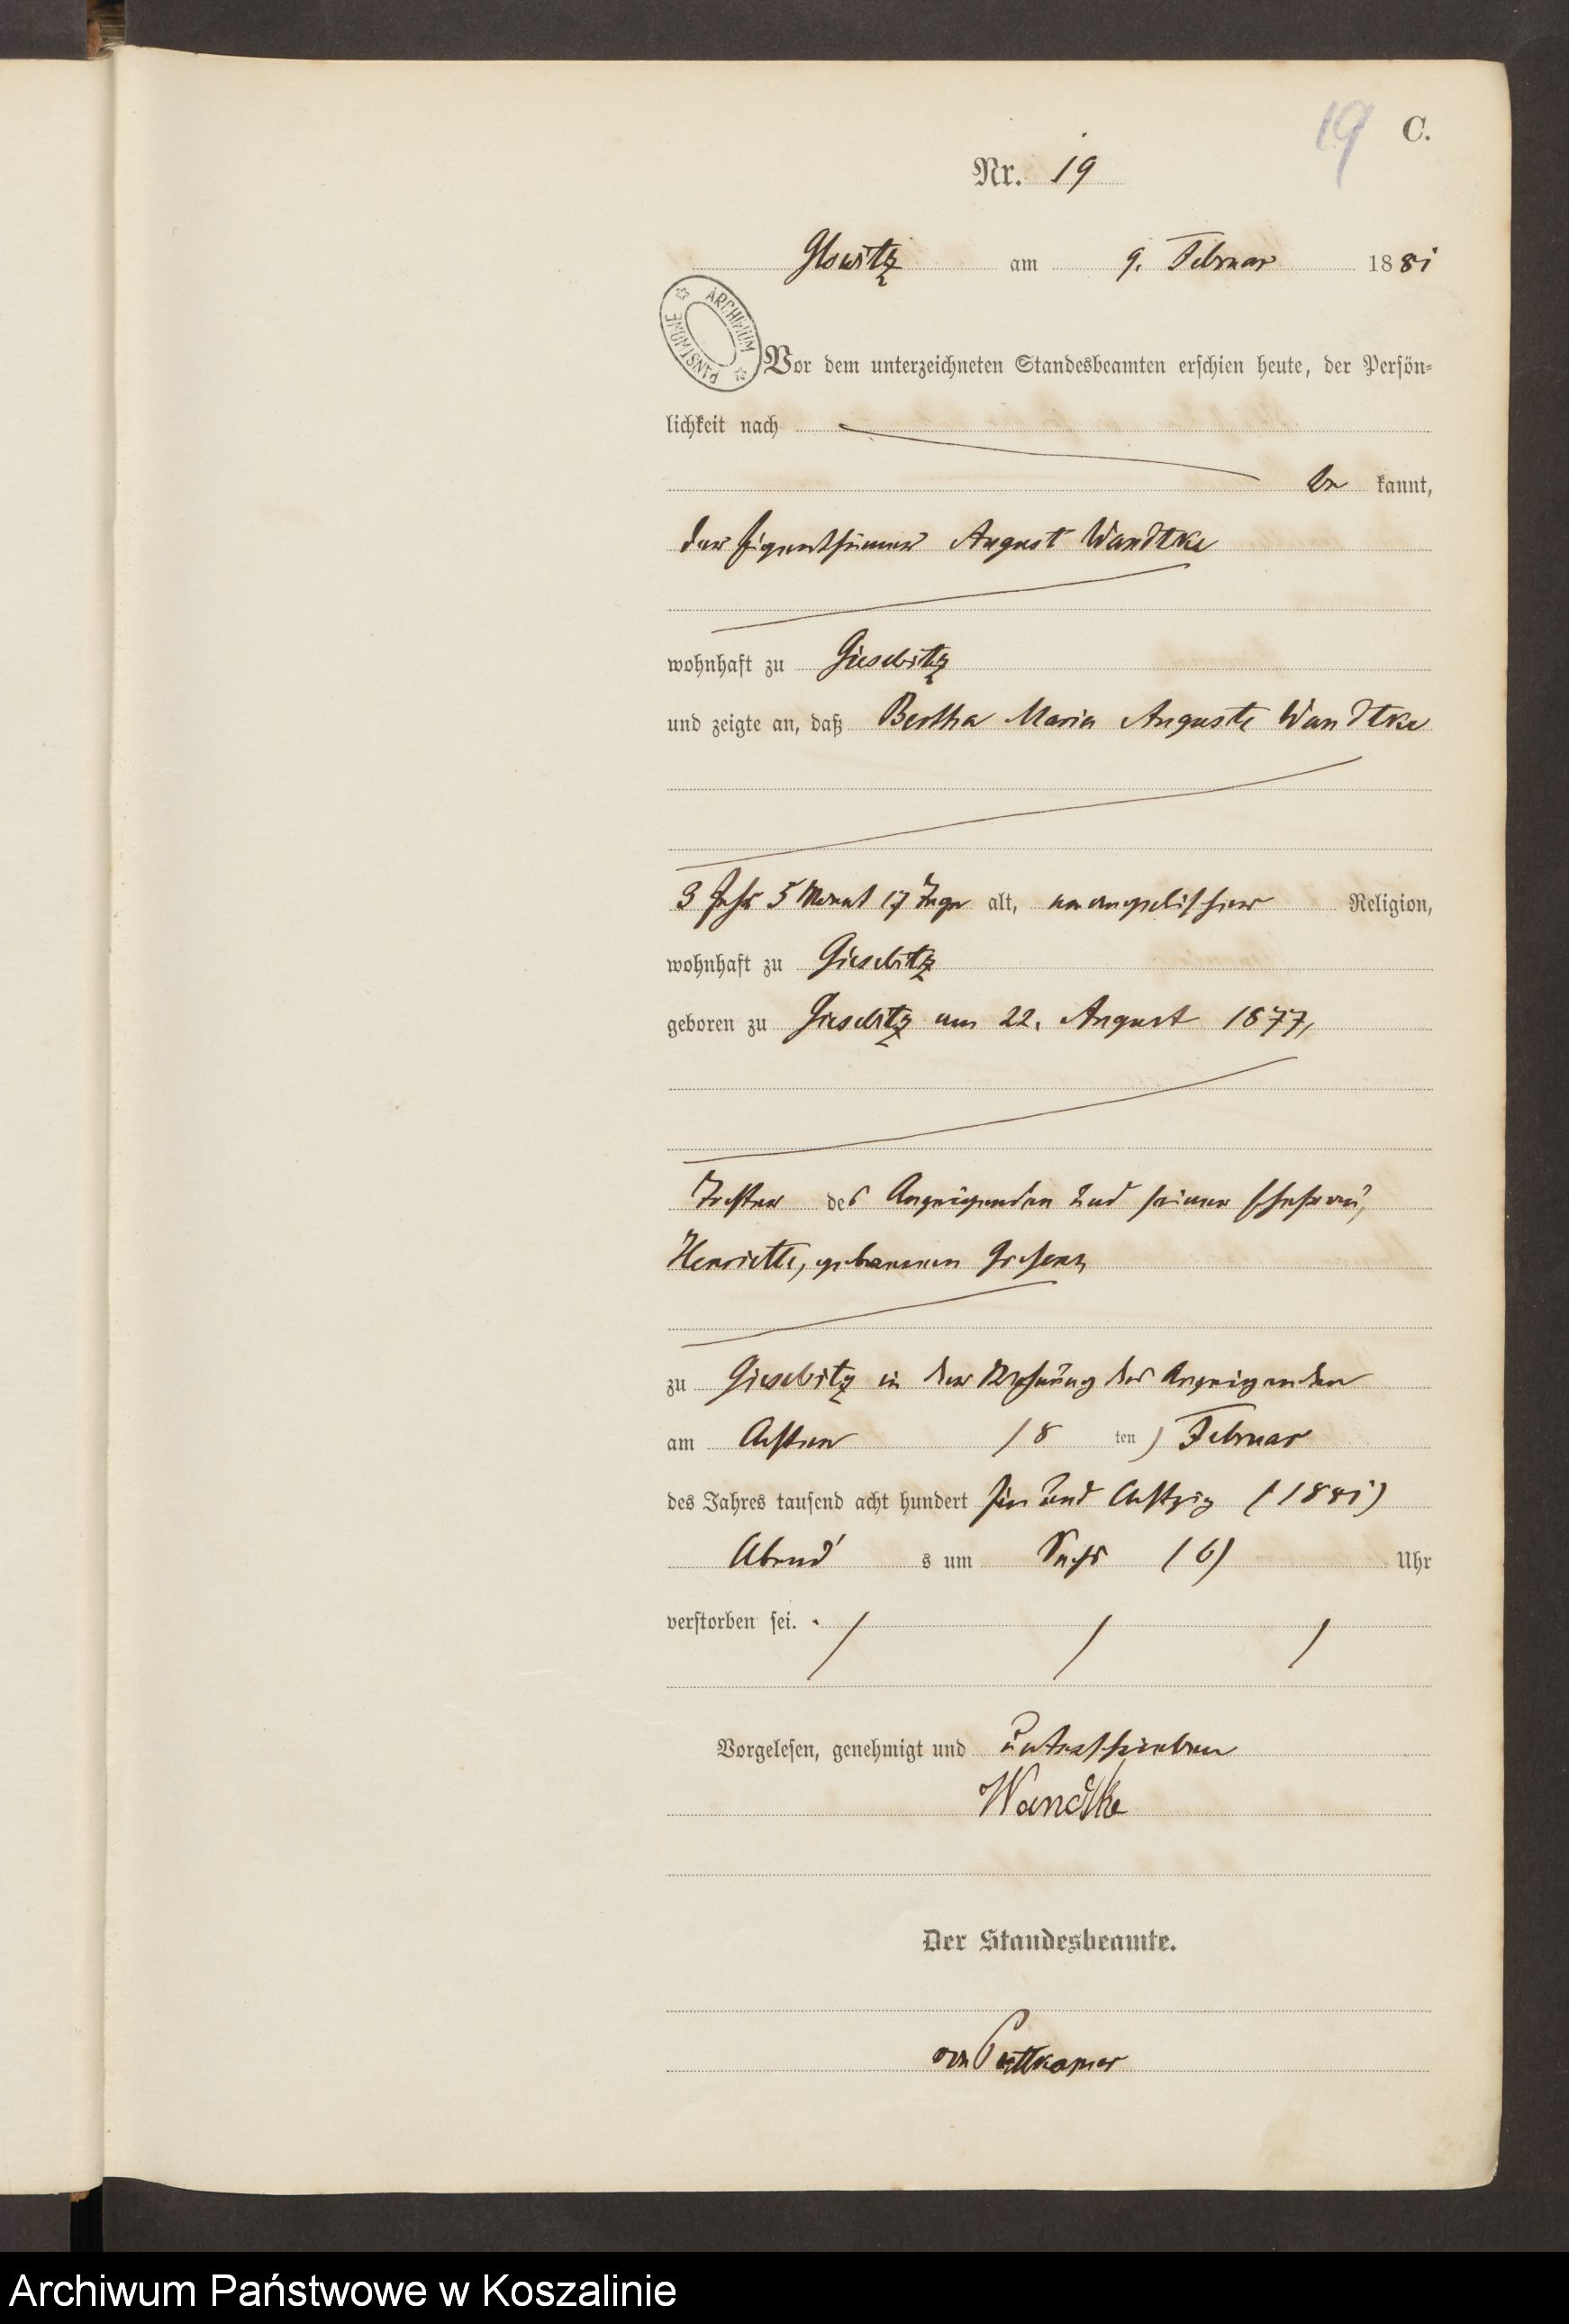 19 C.
Nr. 19
Glowitz am 9. Februar 1881
ARCHIWUM PAŃSTWOWE
Vor dem unterzeichneten Standesbeamten erschien heute, der Persön-
lichkeit nach
be kannt,
der Eigenthümer August Wandtke
wohnhaft zu Giesebitz
und zeigte an, daß Bertha Maria Auguste Wandtke
3 Jahr 5 Monat 17 Tage alt, evangelischer Religion,
wohnhaft zu Giesebitz
geboren zu Giesebitz am 22. August 1877,
Tochter des Anzeigenden und seiner Ehefrau,
Henriette, geborenen
zu Giesebitz in der Wohnung des Anzeigenden
am Achten (8 ten) Februar
des Jahres tausend acht hundert Ein und Achtzig (1881)
Abend s um Sechs (6) Uhr
verstorben sei.
Vorgelesen, genehmigt und unterschrieben
Wandtke
Der Standesbeamte.
von Puttkamer
Archiwum Państwowe w Koszalinie